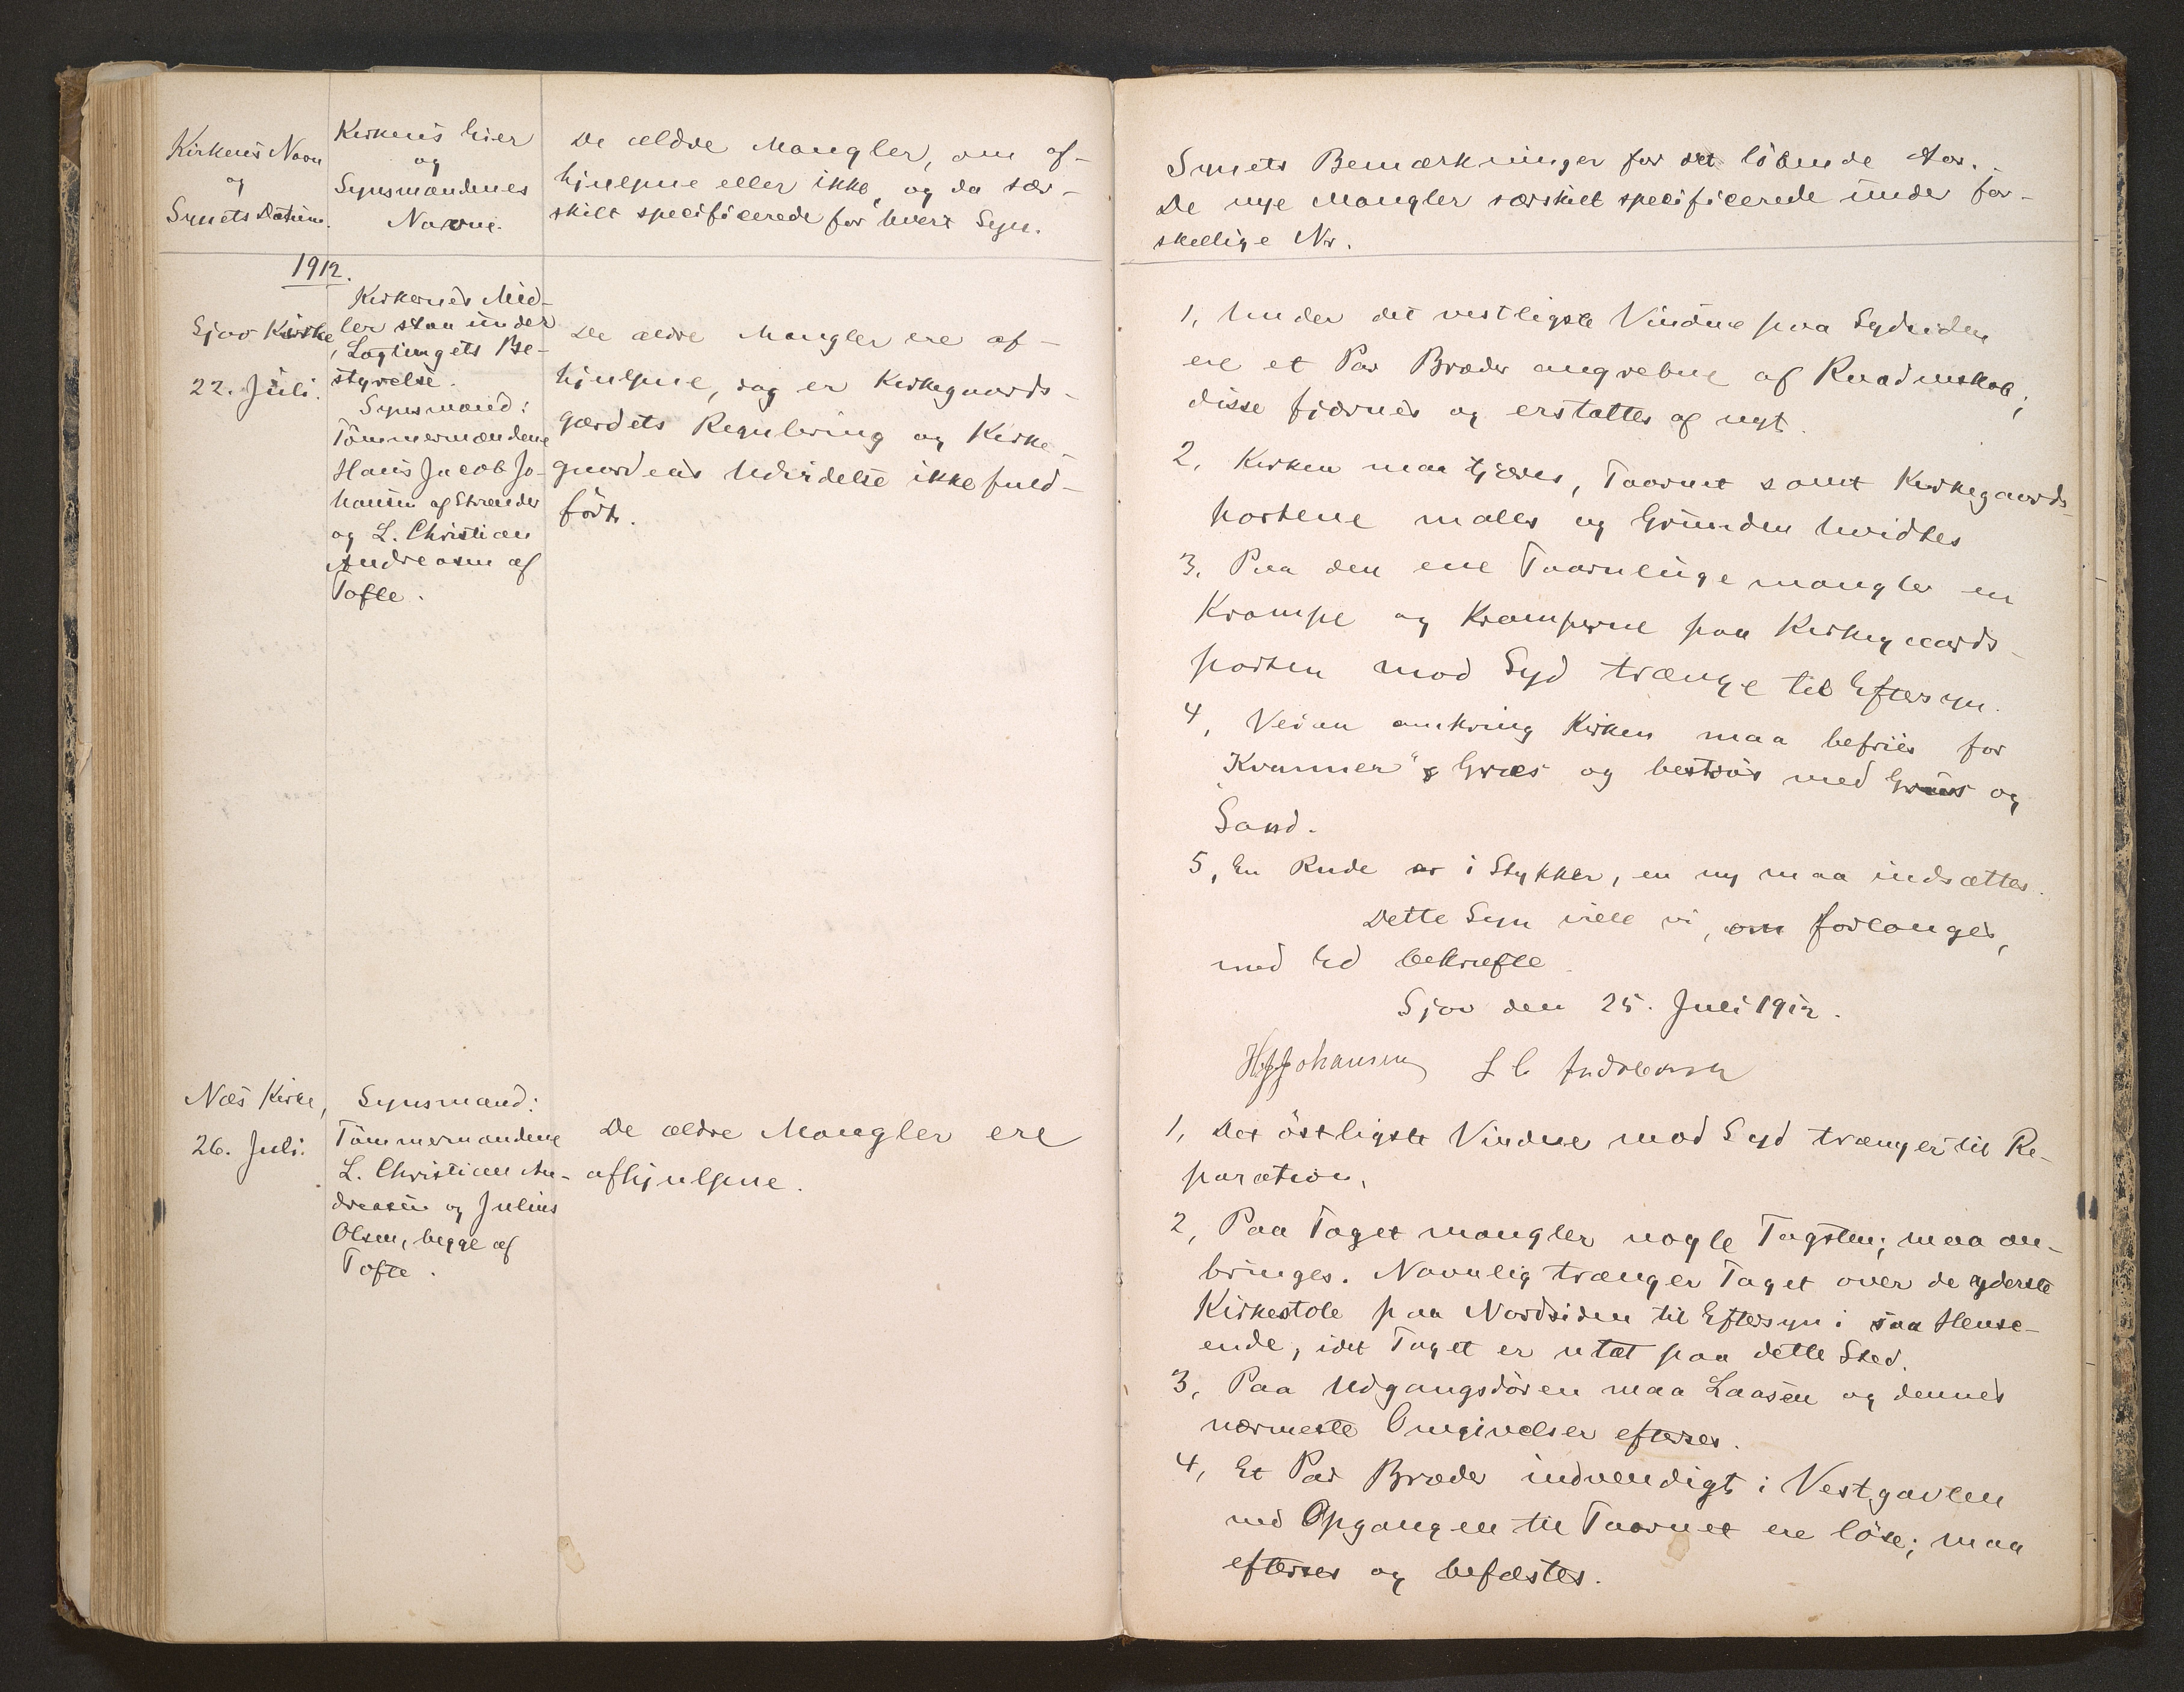 Kirkens Navn
og
Synets Datum.
Kirkens Eier
og
Synsmændenes
Navne.
De ældre Mangler, om af-
hjulpne eller ikke, og da sær-
skilt specificerede for hvert Syn.
1912.
Sjov Kirke,
22. Juli.
Kirkernes Mid-
ler staa under
Lagtingets Be-
styrelse.
Synsmænd:
Tömmermændene
Hans Jacob Jo-
hansen af Strænder
og L. Christian
Andreasen af
Tofte.
De ældre Mangler ere af-
hjulpne, dog er Kirkegaards-
gærdets Regulering og Kirke-
gaardens Udvidelse ikke fuld-
fört.
Næs Kirke,
26. Juli.
Synsmænd:
Tömmermændene
L. Christian An-
dreasen og Julius
Olsen, begge af
Tofte.
De ældre Mangler ere
afhjulpne.
Synets Bemærkninger for det löbende Aar.
De nye Mangler særskilt specificerede under for-
skellige Nr.
1, Under det vestligste Vindue paa Sydsiden
ere et Par Bræder angrebne af Raadenskab;
disse fjærnes og erstattes af nyt.
2, Kirken maa tjæres, Taarnet samt Kirkegaards-
portene males og Grunden hvidtes
3, Paa den ene Taarnluge mangler en
Krampe og Kramperne paa Kirkegaards-
porten mod Syd trænge til Eftersyn.
4, Veien omkring Kirken maa befries for
"Kvanner" & Græs og bestrøs med Grus og
Sand.
5, En Rude er i Stykker, en ny maa indsættes.
Dette Syn ville vi, om forlanges,
med Ed bekræfte.
Sjov den 25. Juli 1912.
H J Johansen L C Andreasen
1, Det östligste Vindue mod Syd trænger til Re-
paration,
2, Paa Taget mangler nogle Tagsten; maa an-
bringes. Navnlig trænger Taget over de yderste
Kirkestole paa Nordsiden til Eftersyn i saa Hense-
ende, idet Taget er utæt paa dette Sted.
3, Paa Udgangsdören maa Laasen og dennes
nærmeste Omgivelser efterses.
4, Et Par Bræder indvendigt i Vestgavlen
ved Opgangen til Taarnet ere löse; maa
efterses og befæstes.